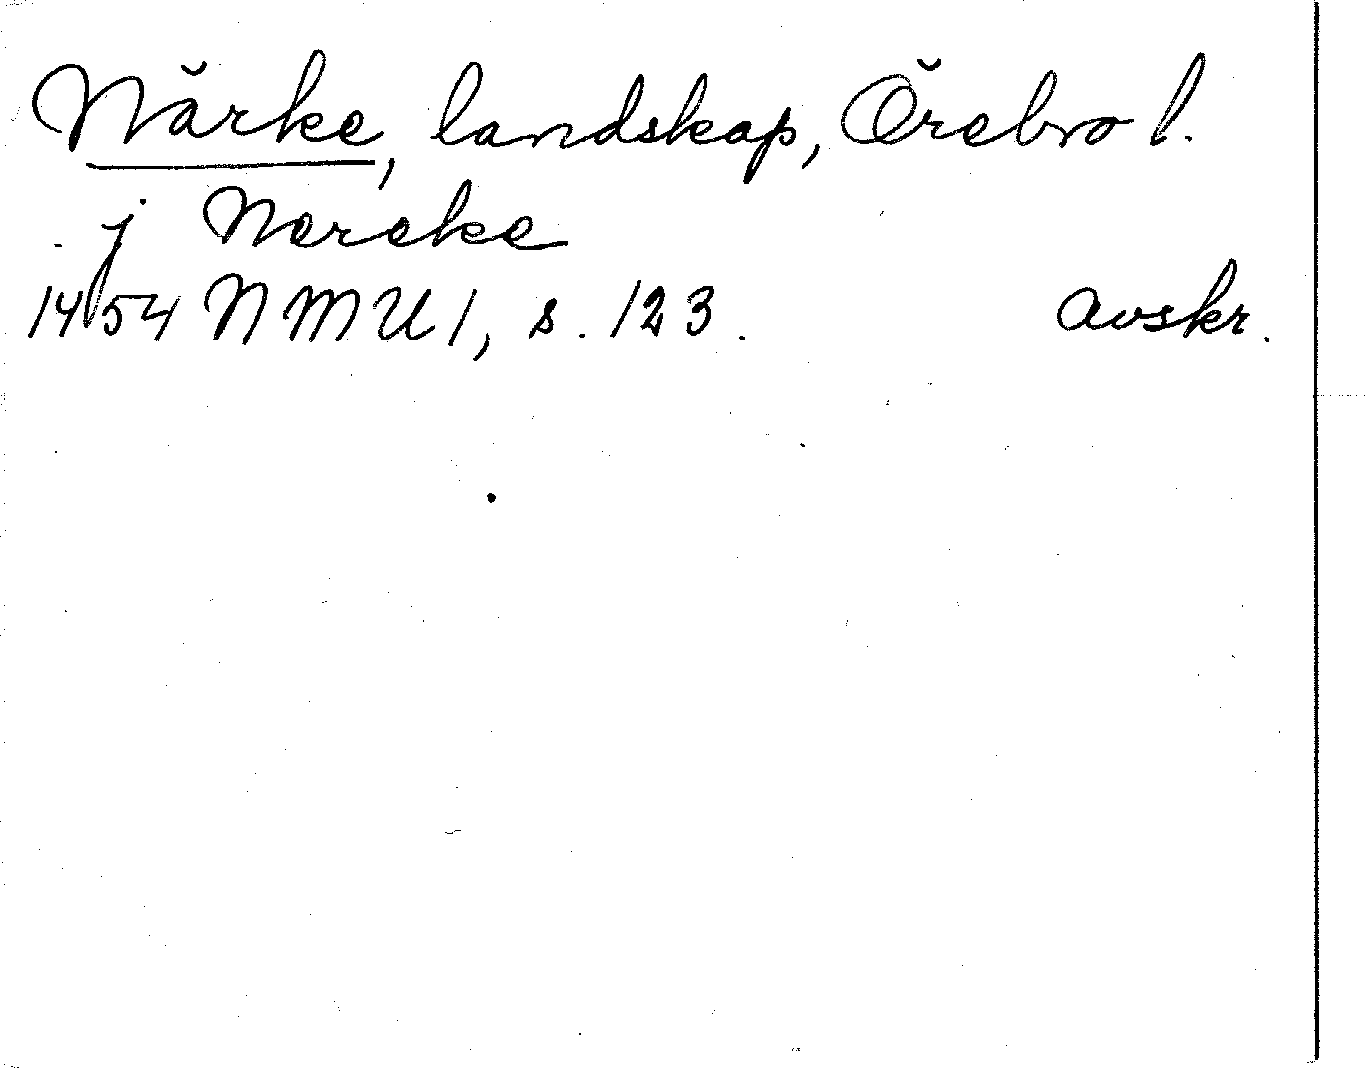 Närke, landskap, Örebro l.
j Nereke
1454 NMU 1, s. 123. avskr.